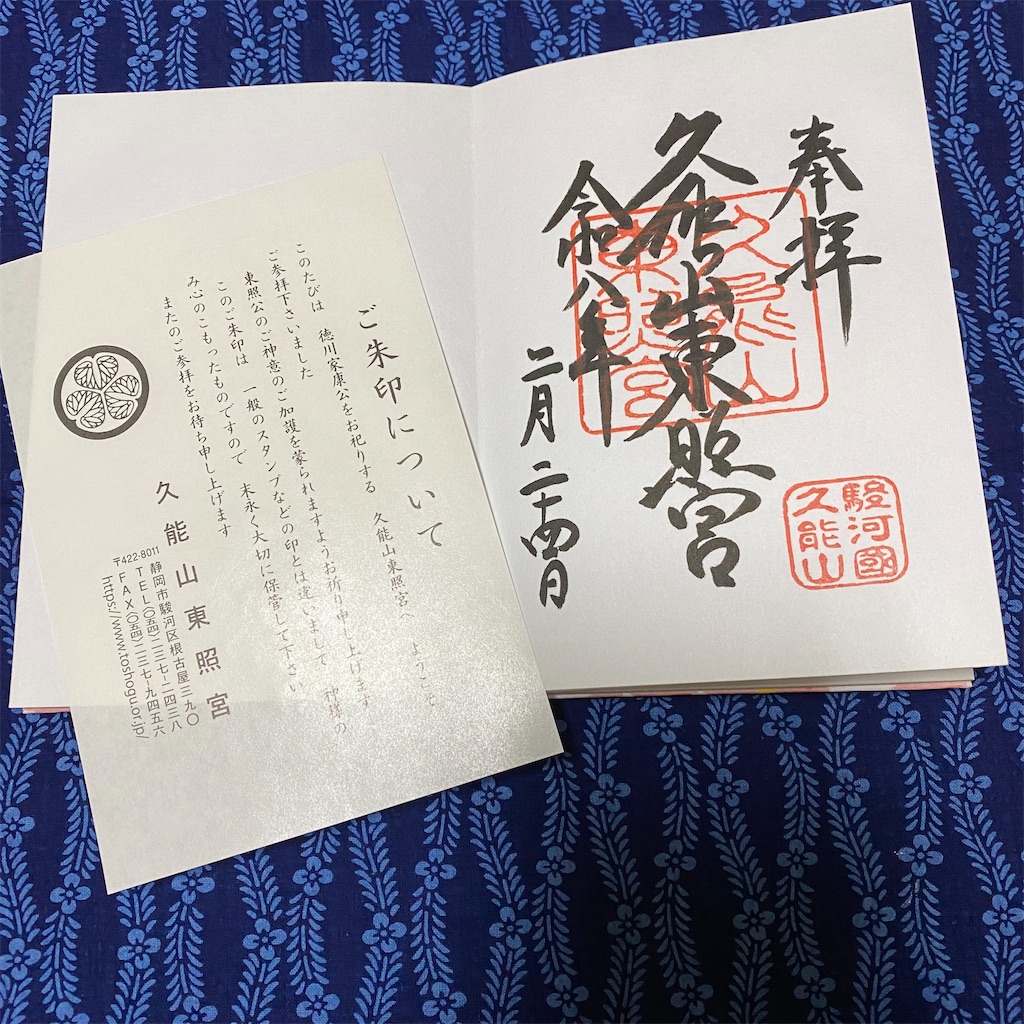 奉拝
駿河國
久能山
久能山東照宮
久能山
東照宮
令和八年
二月二十四日
ご朱印について
このたびは 徳川家康公をお祀りする 久能山東照宮へ ようこそ
ご参拝下さいました
東照公のご神意のご加護を蒙られますようお祈り申し上げます
このご朱印は 一般のスタンプなどの印とは違いまして 神様の
み心のこもったものですので 末永く大切に保管して下さい
またのご参拝をお待ち申し上げます
久能山東照宮
〒422-8011
静岡市駿河区根古屋三九〇
TEL(〇五四)二三七-二四三八
FAX(〇五四)二三七-九四五六
https://www.toshogu.or.jp/